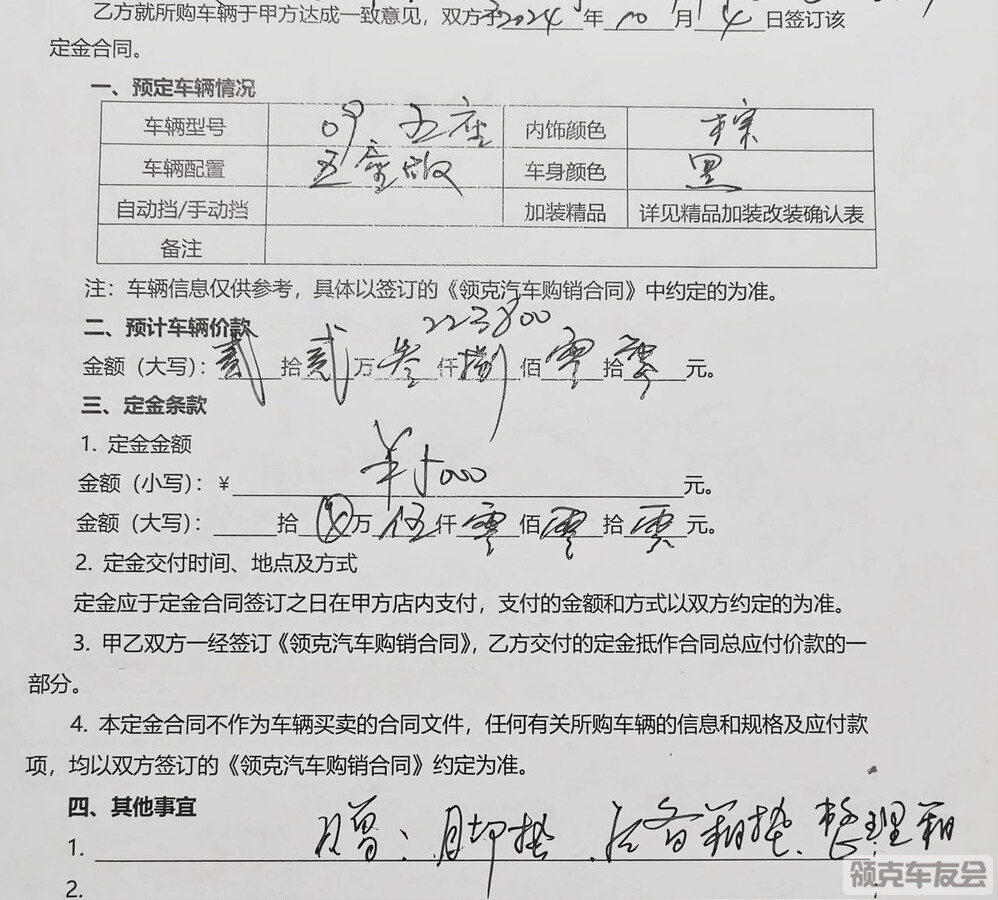 乙方就所购车辆于甲方达成一致意见，双方于2024年10月4日签订该
定金合同。
一、预定车辆情况
车辆型号 09 五座 内饰颜色 棕
车辆配置 五座版 车身颜色 黑
自动挡/手动挡 加装精品 详见精品加装改装确认表
备注
注：车辆信息仅供参考，具体以签订的《领克汽车购销合同》中约定的为准。
二、预计车辆价款 223800
金额（大写）：贰拾贰万叁仟捌佰零拾零元。
三、定金条款
1. 定金金额
金额（小写）：￥ 5000 元。
金额（大写）： 拾 万伍仟零佰零拾零元。
2. 定金交付时间、地点及方式
定金应于定金合同签订之日在甲方店内支付，支付的金额和方式以双方约定的为准。
3. 甲乙双方一经签订《领克汽车购销合同》，乙方交付的定金抵作合同总应付价款的一
部分。
4. 本定金合同不作为车辆买卖的合同文件，任何有关所购车辆的信息和规格及应付款
项，均以双方签订的《领克汽车购销合同》约定为准。
四、其他事宜
1. 赠：脚垫、后备箱垫、整理箱
2.
领克车友会